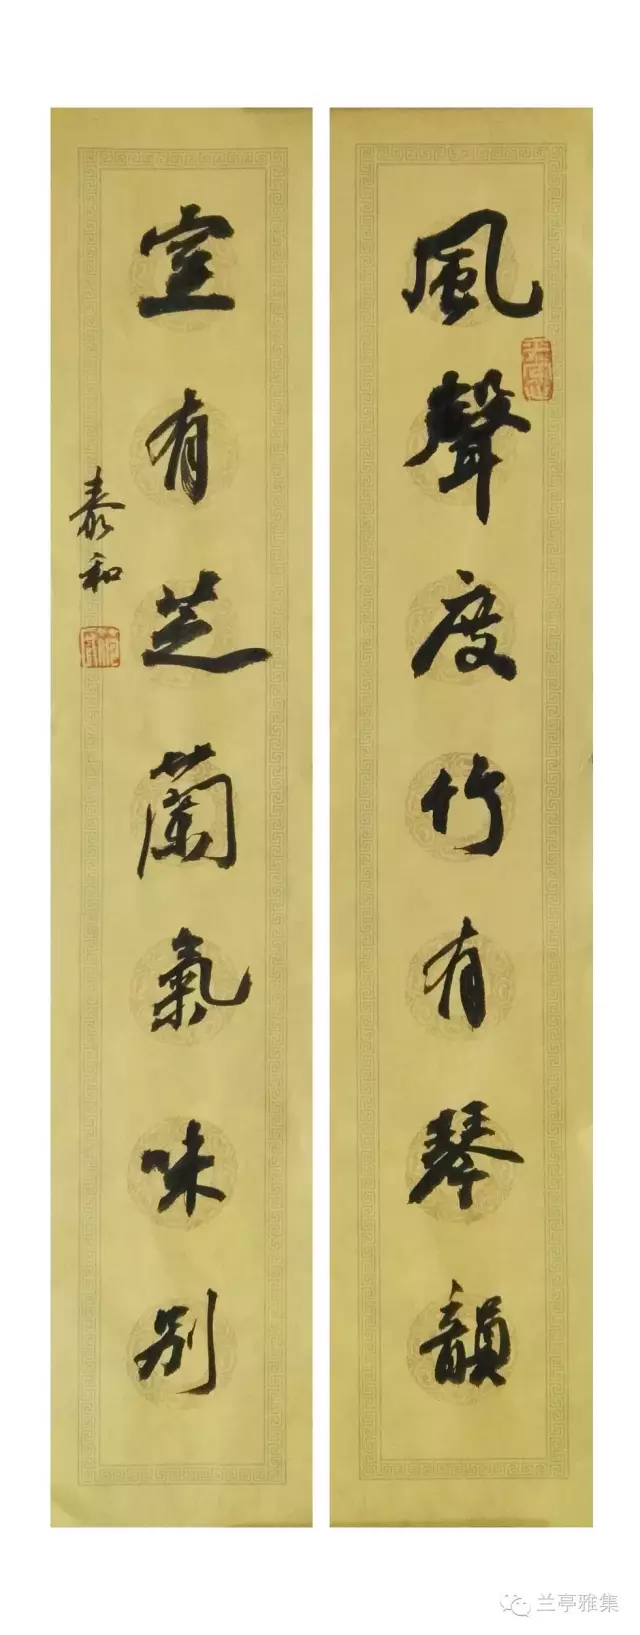 風聲度竹有琴韻
室有芝蘭氣味別
泰和
兰亭雅集